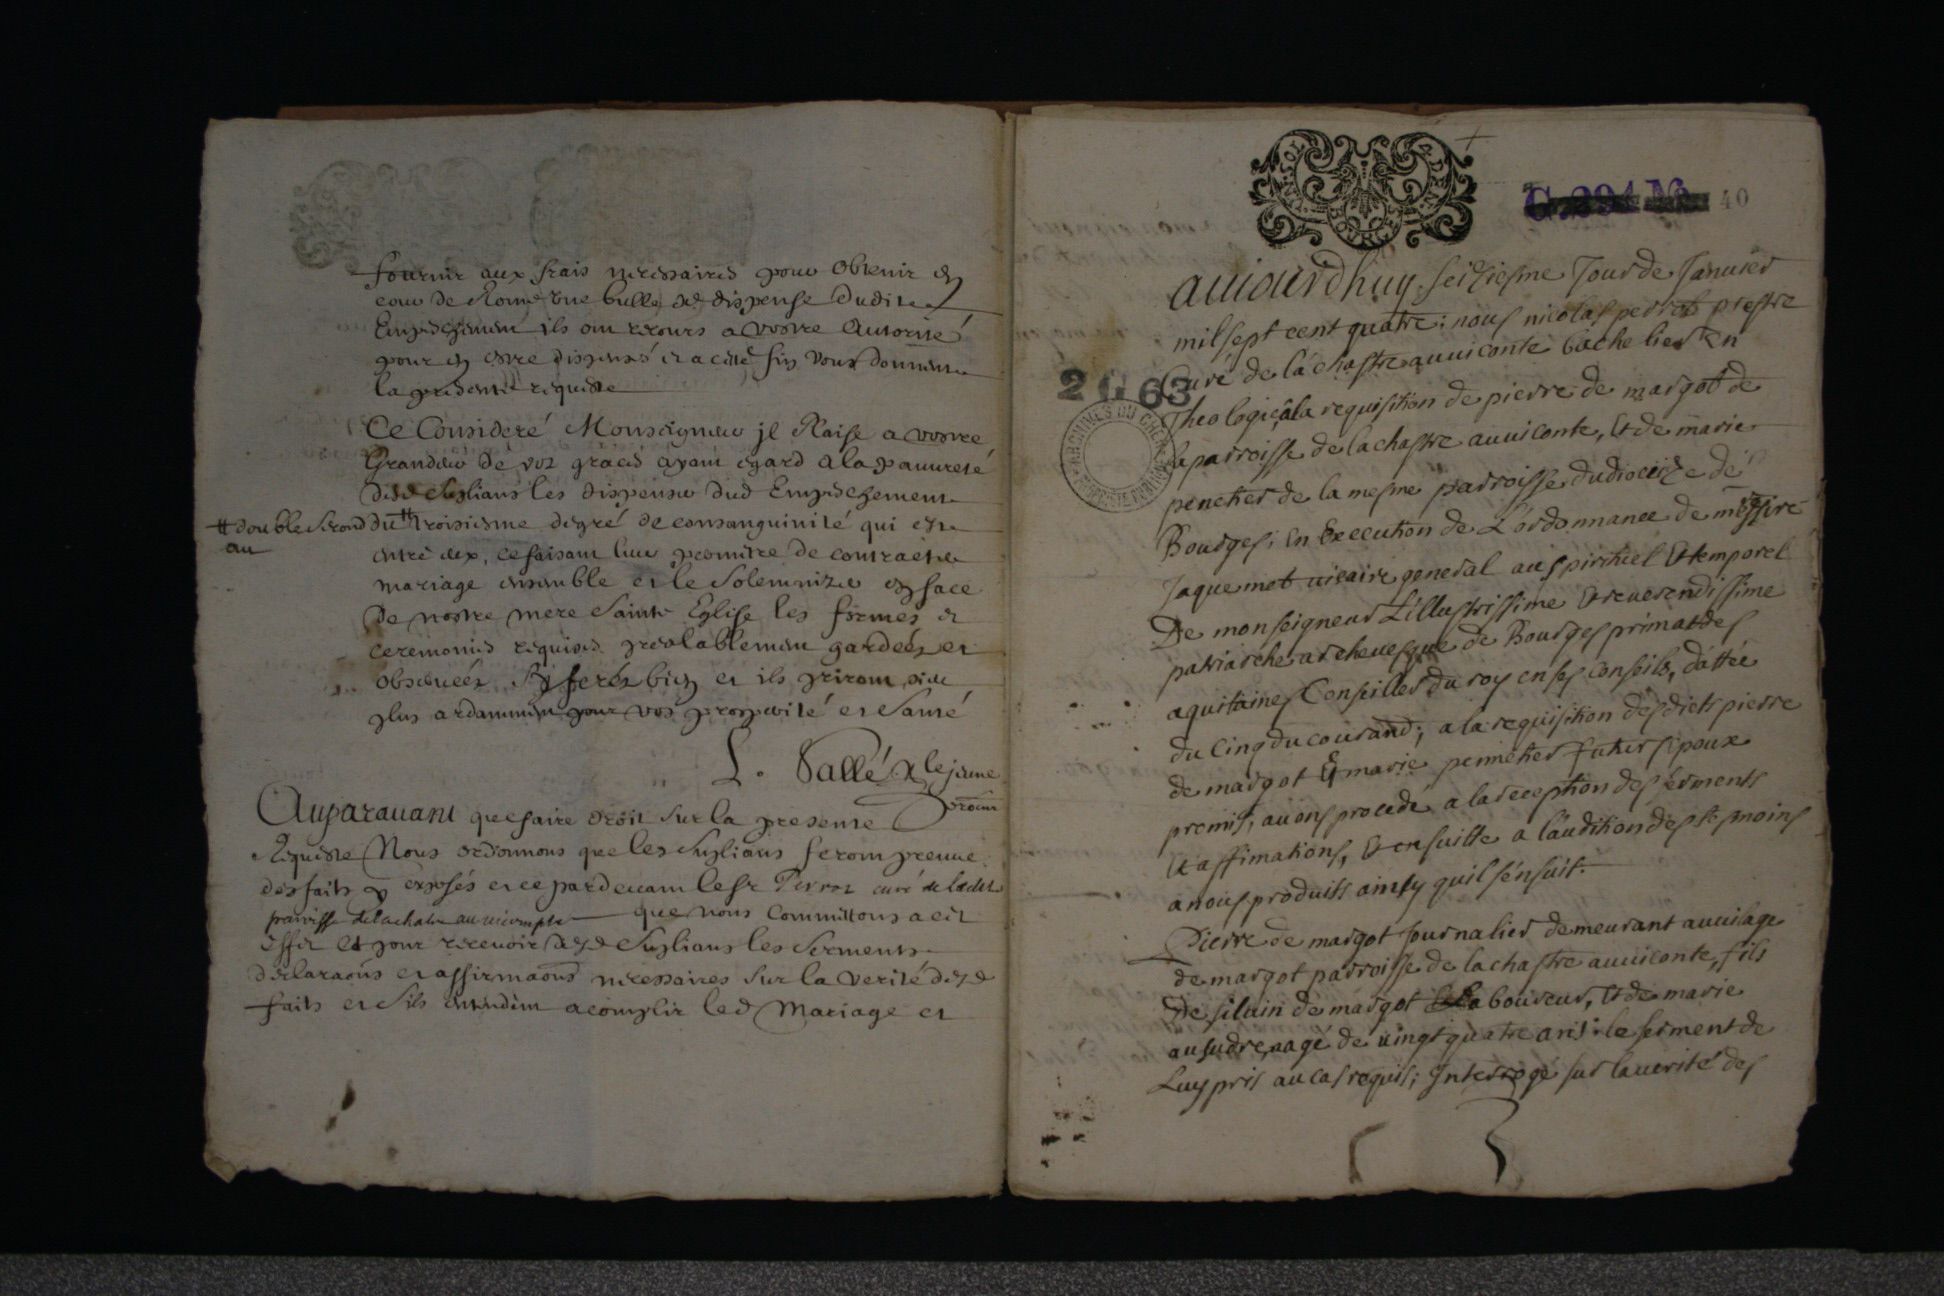 fournir aux frais necessaires pour obtenir en
cour de Rome une bulle de dispense dudit
Empeschement ils ont recours a vostre Autorité
pour en estre dispensé et a cette fin vous donnent
la presente requeste
Ce Consideré Monseigneur jl Plaise a vostre
Grandeur de voz graces ayant egard a la pauureté
desd supliants les dispenser dud Empeschement
# double second au
du # troisiesme degré de consanguinité qui est
entre eux, ce faisant leur permettre de contracter
mariage ensemble et le Solemnizer en face
de nostre mere Sainte Eglise les formes et
ceremonies requises prealablement gardeés et
obserueés, Sy ferés bien et ils priront dieu
plus ardamment pour vos prosperité et Santé
L. Vallé le jeune
Auparauant que faire droit Sur la presente
Requeste Nous ordonnons que les Suplians feront preuue
des faits y exposés et ce pardeuant le Sr Perrot curé de ladite
parroisse de lachatre au vicompte que nous Committons a cet
effet et pour receuoir desd Suplians les Serments
declaraons et affirmaons necessaires Sur la verité desd
faits et Sils entendent acomplir led Mariage et
C. 294 No 40
auiourdhuy seiziesme Jour de Januier
mil sept cent quatre: nous nicolas perrot prestre
Curé de la chastre auuiconte bachelier En
Theologie, a la requisition de pierre de margot de
la parroisse de la chastre auuiconte, Et de marie
penetier de la mesme parroisse dudioceze de
Bourges; En Execution de L'ordonnance de messire
Jaquemet uicaire general au spirituel Et temporel
De monseigneur L'illustrissime Et reuerendissime
patriarche archeuesque de Bourges primat des
aquitaines Conseiller du roy en ses conseils, dattée
du cinq du courand; a la requisition desdicts pierre
de margot Et marie pennetier futurs epoux
premis, auons procedé a la reception des serments
Et affimations, Et ensuitte a l'audition des tesmoins
a nous produits ainsy quil s'ensuit.
Pierre de margot journalier demeurant au uilage
de margot parroisse de la chastre auuiconte, fils
De siluin de margot Laboureur, Et de marie
ausudre, agé de uingt quatre ans: le serment de
Luy pris au cas requis; Interrogé sur la uerité des